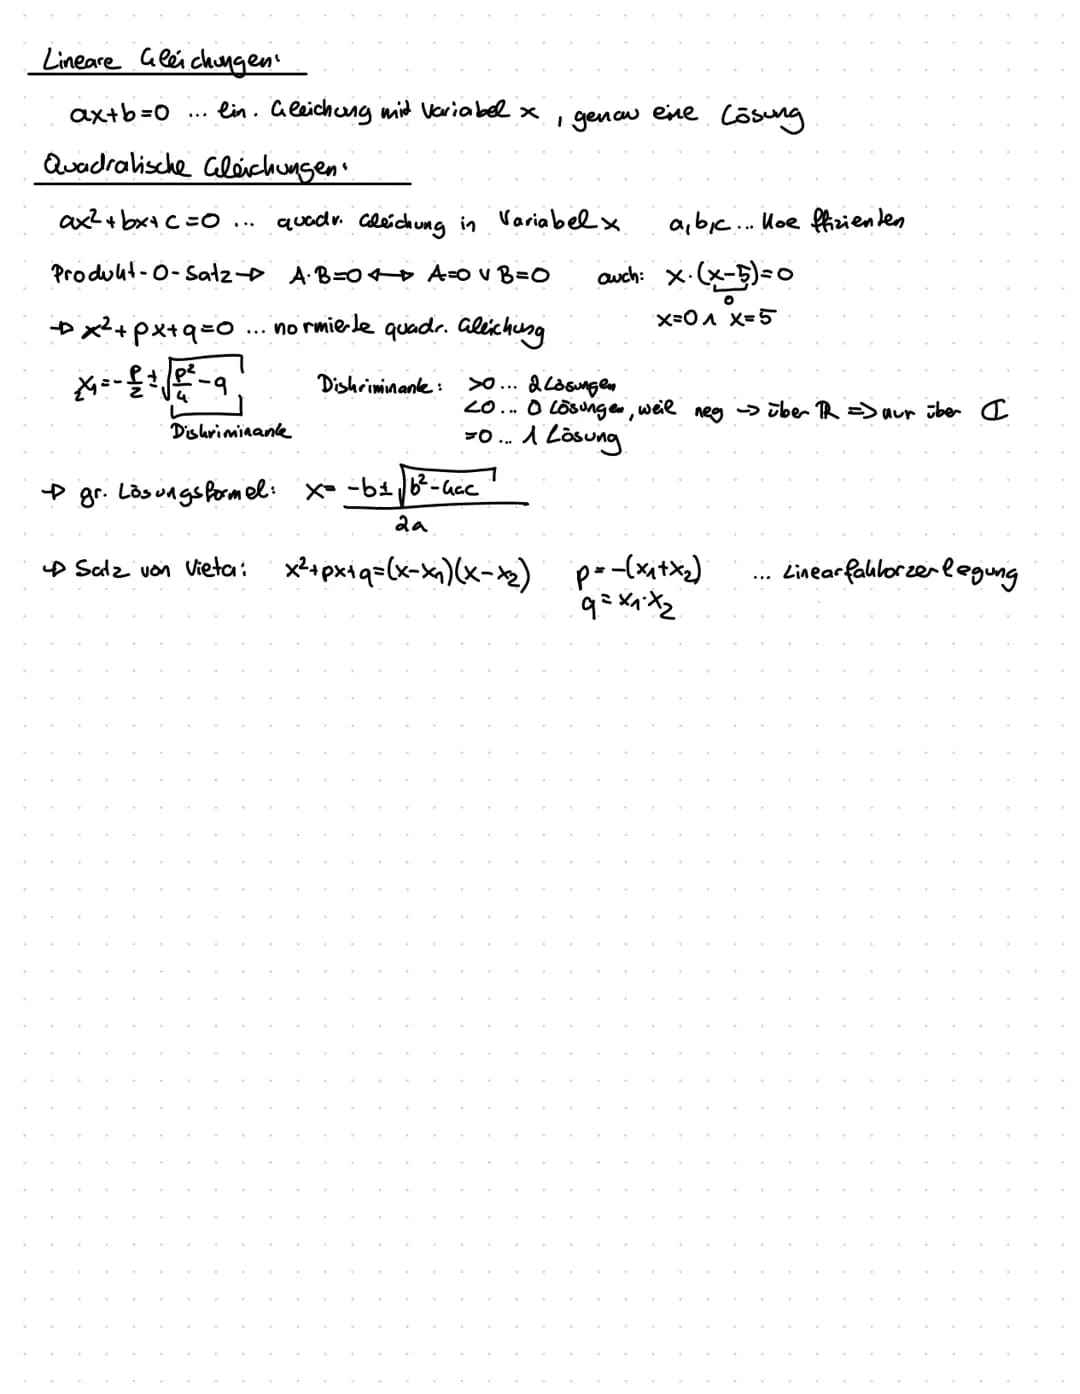 Lineare Gleichungen:
ax+b=0 ... lin. Gleichung mit Variabel x, genau eine Lösung
Quadratische Gleichungen:
ax²+bx+c=0 ... quadr. Gleichung in Variabel x a,b,c ... Koeffizienten
Produkt-0-Satz → A·B=0 ↔ A=0 ∨ B=0 auch: x·(x-5)=0
0
x=0 ∧ x=5
→ x²+px+q=0 ... normierte quadr. Gleichung
x₁,₂=-p/2 ± √(p²/4-q) Diskriminante: >0 ... 2 Lösungen
<0 ... 0 Lösungen, weil neg → über ℝ ⇒ nur über ℂ
Diskriminante =0 ... 1 Lösung
→ gr. Lösungsformel: x= (-b±√(b²-4ac))/2a
→ Satz von Vieta: x²+px+q=(x-x₁)(x-x₂) p=-(x₁+x₂) ... Linearfaktorzerlegung
q=x₁·x₂